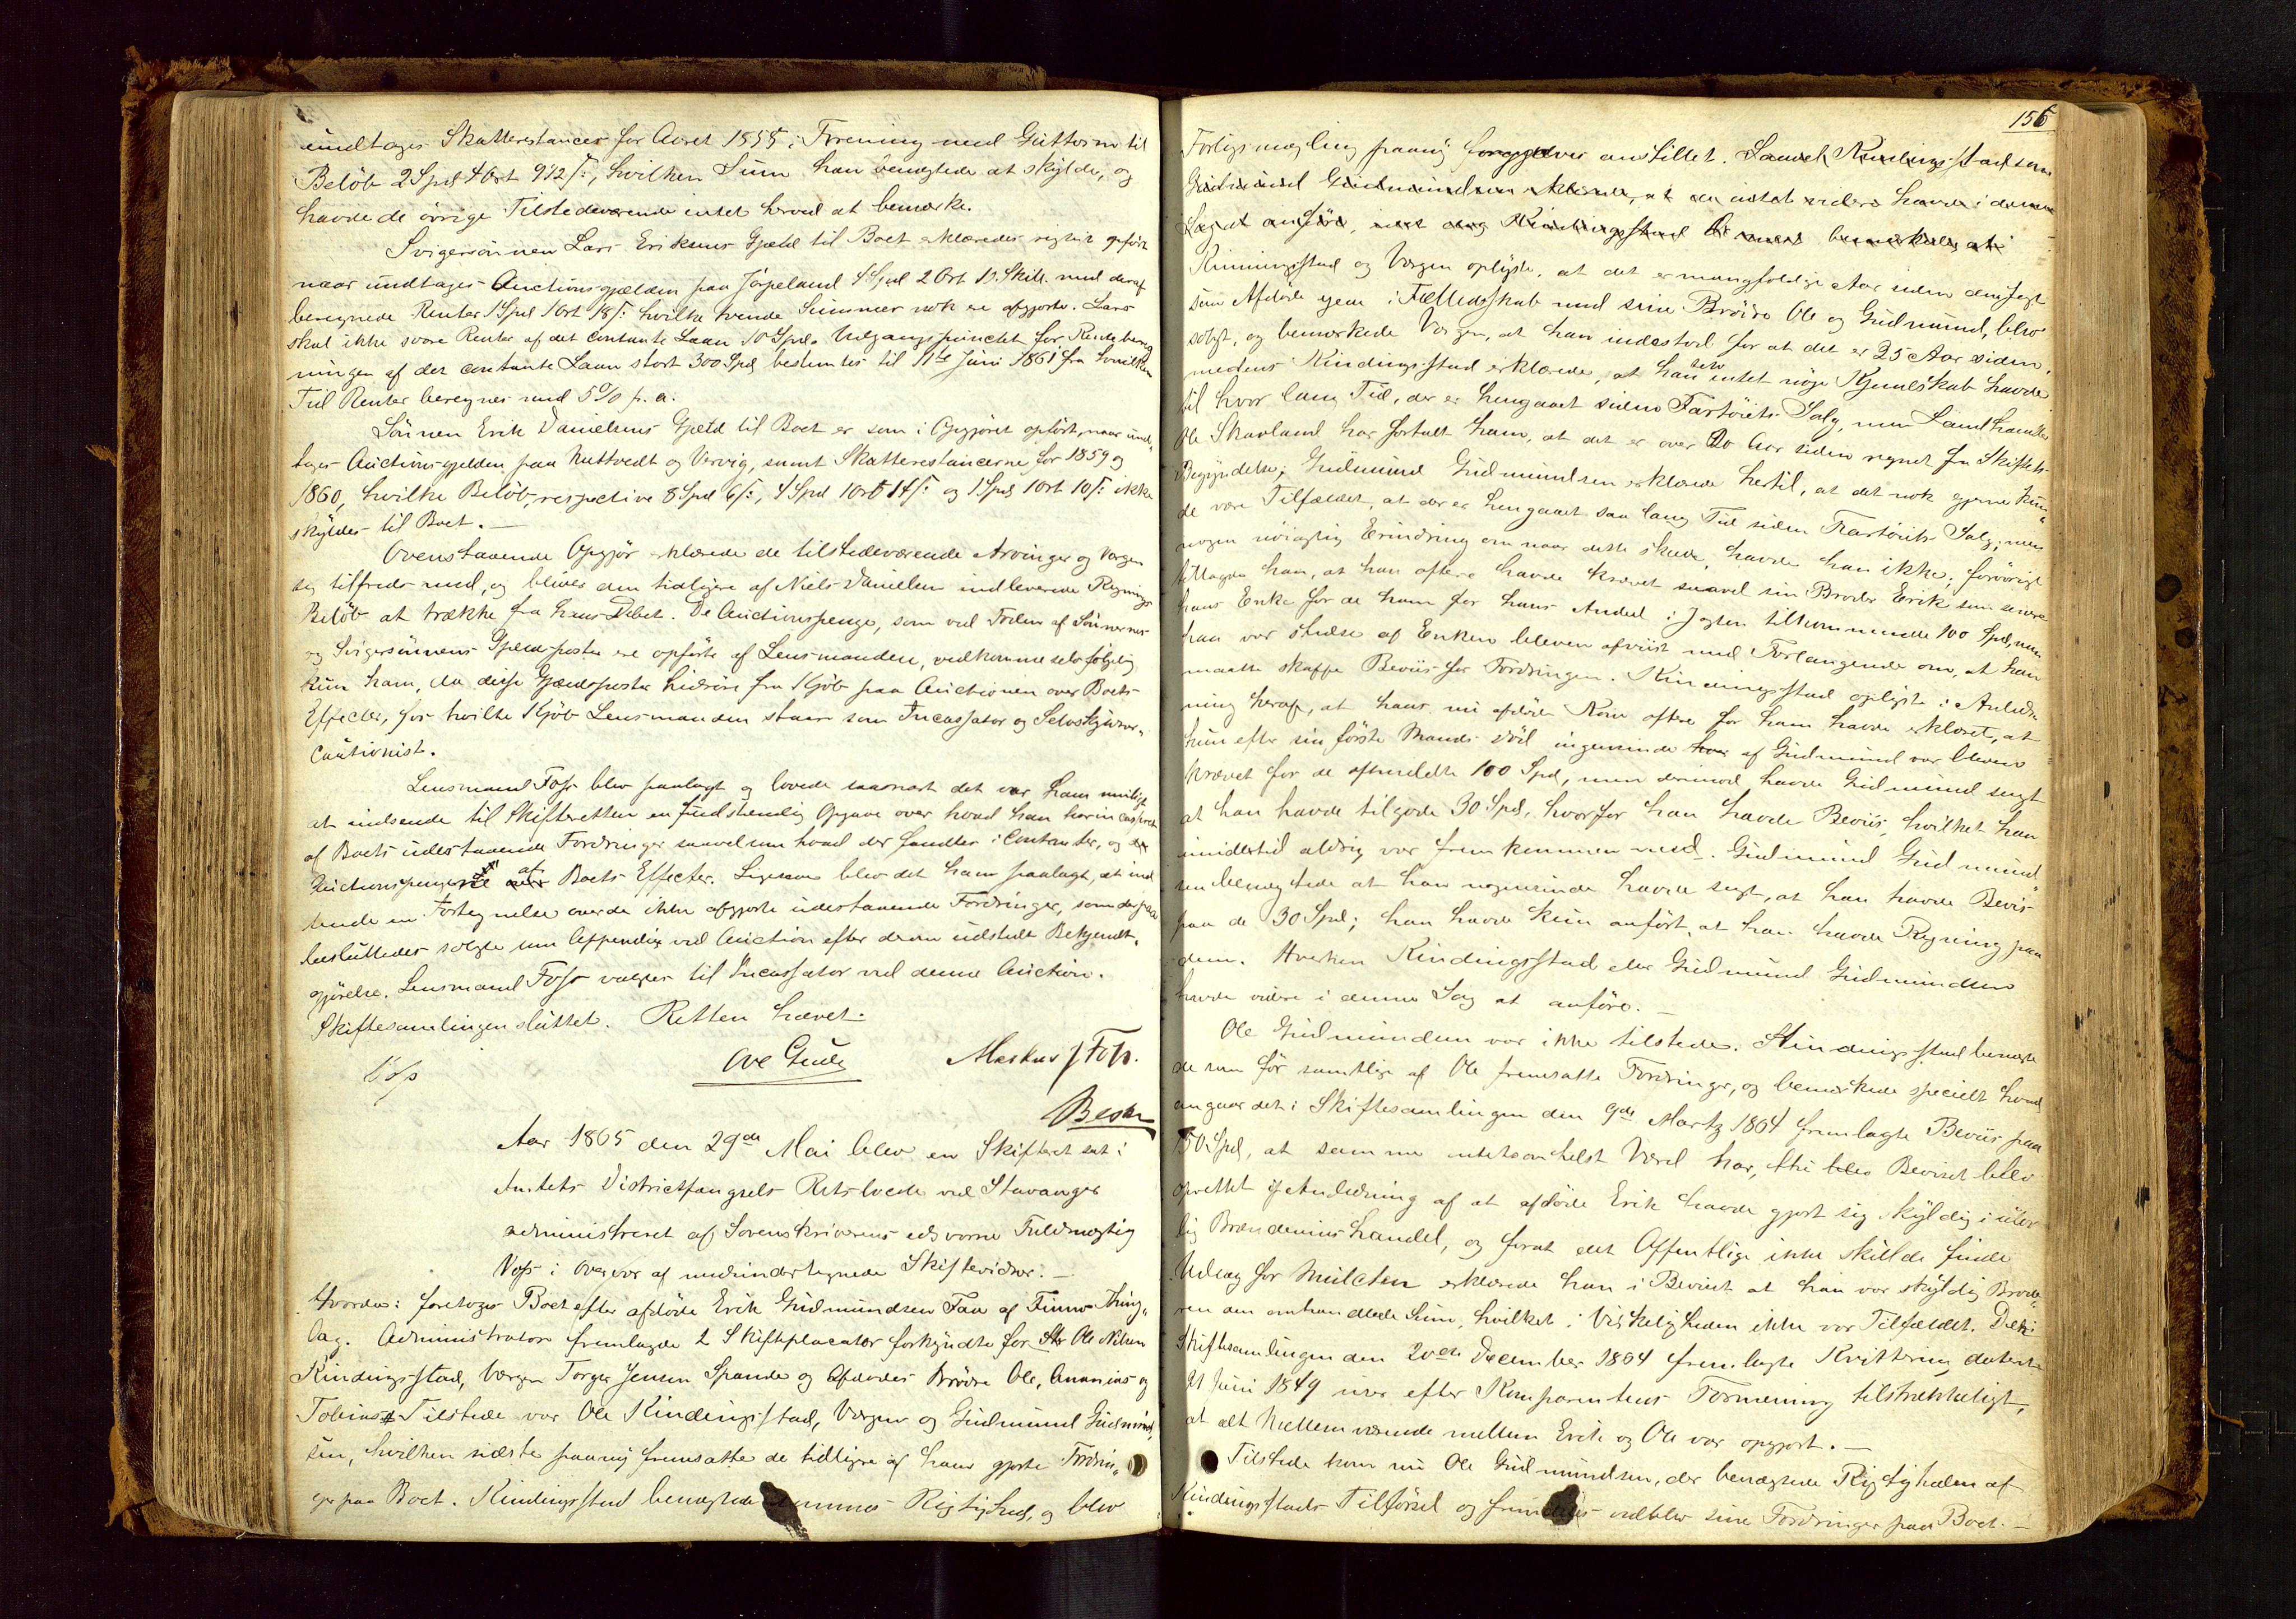 undtages Skatterestancer for Aaret 1855 i Forening med Guttorm til
Beløb 2 Spd 4 Ort 9 1/2 ß:, hvilken Sum han benægtede at skylde, og
havde de övrige Tilstedeværende intet herved at bemærke.
Svigersönnen Lars Eriksens Gjæld til Boet erklæredes rigtig opfört
naar undtages Auctionsgjælden paa Jörpeland 4 Spd 2 Ort 11 Skill. med deraf
beregnede Renter 1 Spd 1 Ort 18 ß: hvilke tvende Summer nok ere afgjorte. Lars
skal ikke svare Renter af det contante Laan 10 Spd. Udgangspunctet for Rentebereg
ningen af det contante Laan stort 300 Spd bestemtes til 11te Juni 1861 fra hvilken
Tid Renter beregnes med 5 % p. a.
Sönnen Erik Danielsens Gjæld til Boet er som i Opgjöret opfört, naar und„
tages Auctionsgjelden paa Nattvedt og Vervig, samt Skatterestancerne for 1859 og
1860, hvilke Beløb, respective 8 Spd 6 ß:, 4 Spd 1 Ort 14 ß: og 1 Spd 1 Ort 10 ß: ikke
skyldes til Boet. —
Ovenstaaende Opgjör erklærede de tilstedeværende Arvinger og Vergen
sig tilfreds med, og bliver den tidligere af Niels Danielsen indleverede Regnings
Belöb at trække fra hans Debet. De Auctionspenge, som ved Foden af Sönnernes
og Svigersönnens Gjeldsposter ere opförte af Lensmanden, vedkomme selvfölgelig
kun ham, da disse Gjældsposter hidröre fra Kjöb paa Auctionen over Boets
Effecter, for hvilke Kjöb Lensmanden staar som Incassator og Selvskyldner„
Cautionist.
Lensmand Foss blev paalagt og lovede saasnart det var ham muligt
at indsende til Skifteretten en fuldstændig Opgave over hvad han har incasseret
af Boets udestaaende Fordringer saavelsom hvad der fandtes i Contanter, og
Auctionspengene af Boets Effecter. Ligesaa blev det ham paalagt, at ind
sende en Fortegnelse over de ikke afgjorte udestaaende Fordringer, som der paa
besluttedes solgte som Appendix ved Auction efter derom udstedt Bekjendt„
gjörelse. Lensmand Foss valgtes til Incassator ved denne Auction.
Skiftesamlingen sluttet. Retten hævet.
Voss Ove Gude Markus J Foss.
Beskr
Aar 1865 den 29de Mai blev en Skifteret sat i
Amtets Districtsfængsels Retslocale ved Stavanger
administreret af Sorenskriverens edsvorne Fuldmægtig
Voss i Overvær af medundertegnede Skiftevidner. —
Hvorda: foretoges Boet efter afdöde Erik Gudmundsen Faa af Finnö Thing„
lag. Administrator fremlagde 2 Skifteplacater forkyndte for Ole Nilsen
Kindingsstad, Værgen Torger Jensen Spande og Afdödes Brödre Ole, Ananias og
Tobias. Tilstede var Ole Kindingsstad, Værgen og Gudmund Gudmund„
sen, hvilken sidste paany fremsatte de tidligere af ham gjorte Fordrin„
ger paa Boet. Kindingsstad benægtede sammes Rigtighed, og blev
156
Forligsmægling paany forgjæves anstillet. Saavel Kindingsstad som
Gudmund Gudmundsen erklærede, at de intet videre havde i denne
Sag at anföre, men dog Kindingsstad bemærkede, at
Kinningsstad og Værgen oplyste, at det er mangfoldige Aar siden den Jagt
som Afdöde eiede i Fællesskab med sine Brödre Ole og Gudmund, blev
solgt, og bemærkede Værgen, at han indestod for at det er 25 Aar siden,
medens Kindingsstad erklærede, at han selv intet nöje Kjendskab havde
til hvor lang Tid, der er hengaaet siden Fartöiets Salg, men Landhandler
Ole Skavland har fortalt ham, at det er over 20 Aar siden regnet fra Skiftets
Begyndelse; Gudmund Gudmundsen erklærede hertil, at det nok gjerne kun„
de være Tilfældet, at der er hengaaet saa lang Tid siden Fartöiets Salg; men
nogen nöiagtig Erindring om naar dette skede, havde han ikke; forövrigt
tillagde han, at han oftere havde krævet saavel sin Broder Erik som senere
hans Enke for de ham for hans Andel i Jagten tilkommende 100 Spd, men
han var stedse af Enken bleven afviist med Forlangende om, at han
maatte skaffe Beviis for Fordringen. Kindingsstad oplyste i Anled„
ning heraf, at hans nu afdöde Kone oftere for ham havde erklæret, at
hun efter sin förste Mands Död ingensinde af Gudmund var bleven
krævet for de ommeldte 100 Spd, men derimod havde Gudmund sagt
at han havde tilgode 30 Spd, hvorfor han havde Beviis, hvilket han
imidlertid aldrig var fremkommen med. Gudmund Gudmund„
sen benægtede at han nogensinde havde sagt, at han havde Bevis
paa de 30 Spd; han havde kun anfört, at han havde Regning paa
dem. Hverken Kindingsstad eller Gudmund Gudmundsen
havde videre i denne Sag at anföre. —
Ole Gudmundsen var ikke tilstede. Kindingsstad benægte
de som för samtlige af Ole fremsatte Fordringer, og bemærkede specielt hvad
angaar det i Skiftesamlingen den 9de Martz 1864 fremlagte Beviis paa
50 Spd, at samme intetsomhelst Værd har, thi Beviset blev
oprettet i Anledning af at afdöde Erik havde gjort sig skyldig i ulov
lig Brændeviinshandel, og forat det Offentlige ikke skulde finde
Udlæg for Mulcten erklærede han i Beviset at han var skyldig Brode
ren den omhandlede Sum, hvilket i Virkeligheden ikke var Tilfældet. Det i
Skiftesamlingen den 20de December 1864 fremlagte Kvittering dateret
21 Juni 1849 viser efter Komparentens Formening tilstrækkeligt,
at alt Mellemværende mellem Erik og Ole var opgjort. —
Tilstede kom nu Ole Gudmundsen, der benægtede Rigtigheden af
Kindingsstads Tilförsel og fremdeles vedblev sine Fordringer paa Boet. —